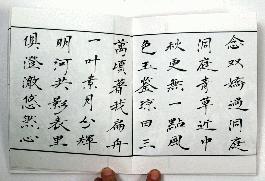 念奴嬌過洞庭
洞庭青草近中
秋更無一點風
色玉鑒瓊田三
萬頃著我扁舟
一叶素月分輝
明河共影表里
俱澄澈悠然心